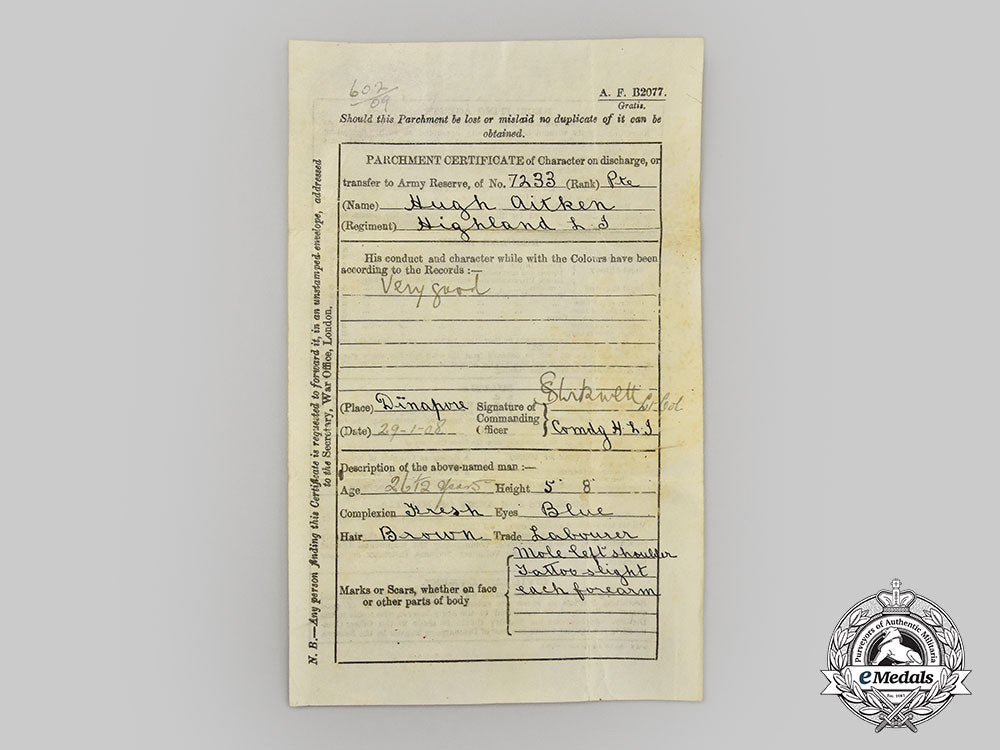 602/09
A. F. B2077.
Gratis.
Should this Parchment be lost or mislaid no duplicate of it can be
obtained.
PARCHMENT CERTIFICATE of Character on discharge, or
transfer to Army Reserve, of No. 7233 (Rank) Pte
(Name) Hugh Aitken
(Regiment) Highland L. I
His conduct and character while with the Colours have been
according to the Records :—
Very good
(Place) Dinapore Signature of
Commanding
Officer
Lt-Col
(Date) 29-1-08 Comdg H L I
Description of the above-named man :—
Age 26 1/2 years Height 5' 8"
Complexion Fresh Eyes Blue
Hair Brown Trade Labourer
Marks or Scars, whether on face
or other parts of body
Mole left shoulder
Tattoo slight
each forearm
N. B.—Any person finding this Certificate is requested to forward it, in an unstamped envelope, addressed
to the Secretary, War Office, London.
Purveyors of Authentic Militaria
eMedals